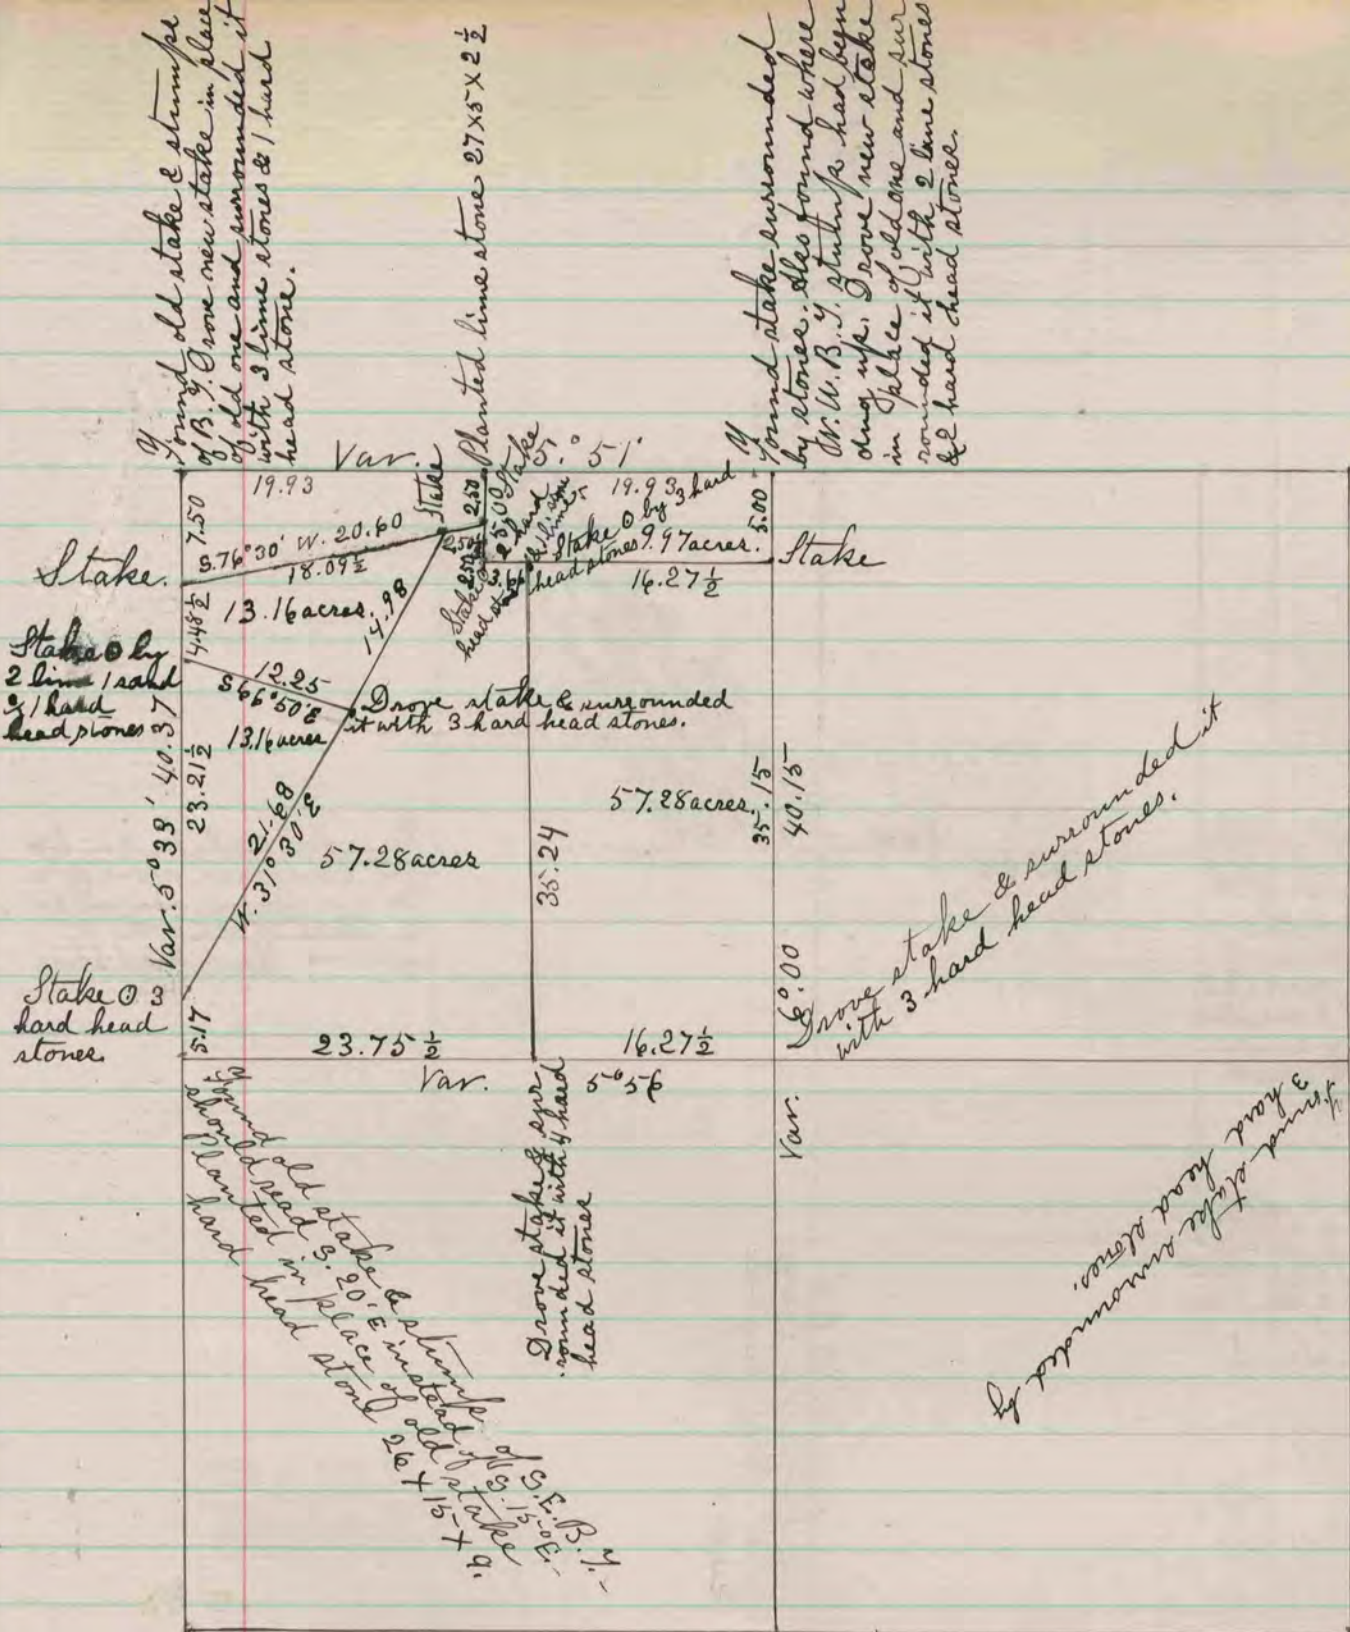 Found old stake & stump
of B.Y. Drove new stake in place
of old one and surrounded it
with 3 lime stones & 1 hard
head stone.
Planted lime stone 27x5x2½
Found stake surrounded
by stones. Also found where
W.B.Y. stump had been
dug up. Drove new stake
in place of old one and sur
rounded it with 2 lime stones
&2 hard head stones.
Var. 5° 51'
19.93
19.93
7.50
Stake
2.50
5.00
Stake
5.00
S. 76°30' W. 20.60
18.09½
2.50
2.50
2 hard
Stake ⊙ by 3 hard
head stones
9.97 acres.
3.66
Stake
16.27½
Stake
Stake.
13.16 acres.
14.98
4.48½
Stake ⊙ by
2 lime 1 sand
& 1 hard
head stones
12.25
S 66°50' E
Drove stake & surrounded
it with 3 hard head stones.
13.16 acres
Var. 5° 33' 40.37
23.21½
21.68
N. 31° 30' E
57.28 acres
35.24
57.28 acres.
35.15
40.15
6°.00
Drove stake & surrounded it
with 3 hard head stones.
Stake ⊙ 3
hard head
stones
5.17
23.75½
16.27½
Var. 5°56
Var.
Found old stake & stump of S.E.B.Y.-
should read S. 20° E instead of S. 15° E.-
Planted in place of old stake
hard head stone 26 x 15 x 9.
Drove stake & sur
rounded it with 4 hard
head stones
Found stake surrounded by
3 hard head stones.